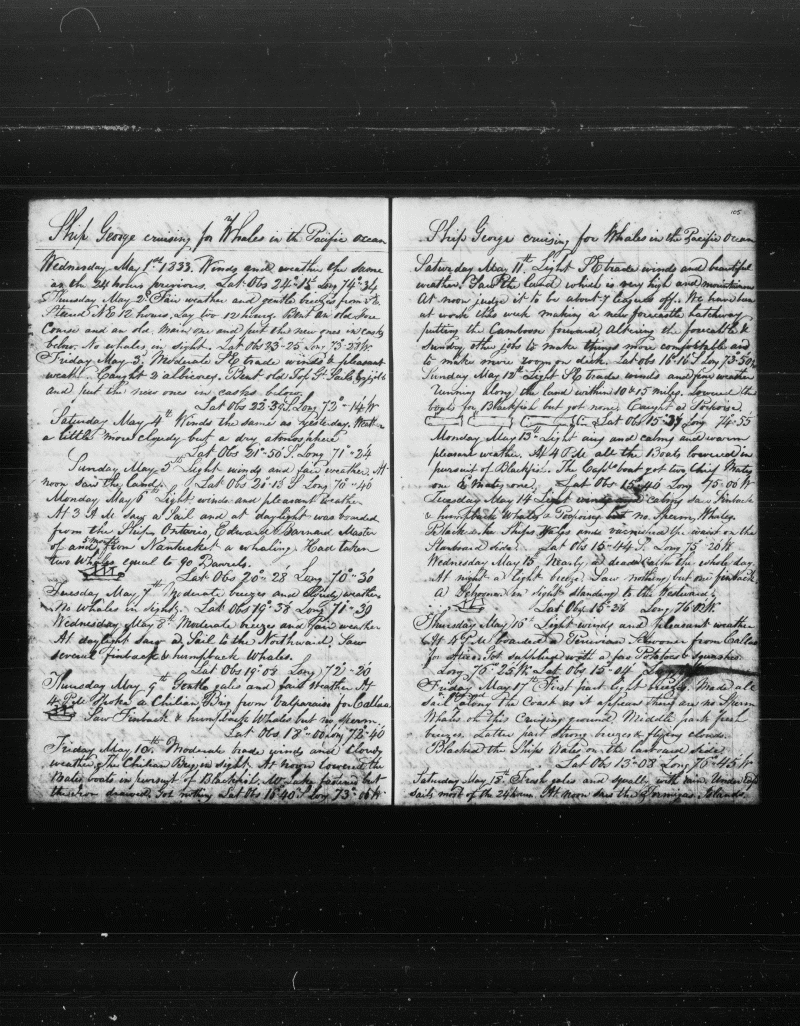 Ship George cruising for Whales in the Pacific Ocean
Wednesday May 1st 1833. Winds and weather the same
as the 24 hours previous. Lat Obs 24°-14 Long 74°-34
Thursday May 2d Fair weather and gentle breezes from
Steerd N E 12 hours. Lay too 12 hours. Bent an old fore
Course and an old Main one and put the new ones in casks
below. No whales in sight. Lat Obs 23-25 Long 73-28 W
Friday May 3d Moderate S E trade winds & pleasant
weath. Caught 2 albicores. Bent old Top Gt Sails
and put the new ones in casks below.
Lat Obs 22-39 S. Long 72°-14 W
Saturday May 4th Winds the same as Yesterday. Weather
a little more cloudy but a dry atmosphere
Lat Obs 21°-56 S Long 71°-24
Sunday May 5th Light winds and fair weather. At
noon saw the land. Lat Obs 21°-13 S Long 70°-40
Monday May 6th Light winds and pleasant weather
At 3 A M saw a Sail and at daylight was boarded
from the Ship Ontario, Edward Barnard Master
of and from Nantucket a whaling. Had taken
two Whales equal to 90 Barrels.
Lat Obs 20°-28' Long 70°-30
Tuesday May 7th Moderate breezes and Cloudy weather
No Whales in sight. Lat Obs 19°-38 Long 71-39
Wednesday May 8th Moderate breezes and fair weather
At daylight saw a Sail to the Northward, Saw
several finback & humpback Whales.
Lat Obs 19°-04 Long 72°-20
Thursday May 9th Gentle gales and fair Weather At
4 P M Spoke a Chilian Brig from Valparaiso for Callao
Saw Finback & humpback Whales but no sperm.
Lat Obs 18°-00 Long 72-40
Friday May 10th Moderate trade winds and Cloudy
weather, the Chilian Brig in sight. At noon lowered the
boats in pursuit of Blackfish. Mr fastened but
the Iron drawed. Got nothing Lat Obs 16°40' S Long 73°-06 W
105
Ship George cruising for Whales in the Pacific Ocean
Saturday May 11th Light S E trade winds and beautiful
weather. Saw the land which is very high and mountainous
At noon judge it to be about 7 leagues off. We have been
at work this week making a new forecastle hatchway
putting the Camboose forward, Altering the forecastle &
sundry other jobs to make things more comfortable and
to make more room on deck. Lat obs 16°16 S Long 73-50
Sunday May 12th Light S E trade winds and fair weather
running along the land within 10 & 15 miles. Lowered the
boats for Blackfish but got none. Caught a Tortoise.
Lat Obs 15-37 Long 74-55
Monday May 13th Light airs and calms and warm
pleasant weather. At 4 P M all the Boats lowered in
pursuit of Blackfish. The Captns boat got two Chief Mates
one & 2 Mate one. Lat Obs 15°40 Long 75-06 W
Tuesday May 14 Light winds and calms saw Finback
& humpback Whales & Porpoises but no Sperm Whales.
Black the Ships Wales and varnished the waist on the
Starboard side. Lat Obs 15-44 S. Long 75°-26 W
Wednesday May 15 Nearly a dead calm the whole day.
At night a light breeze. Saw nothing but one finback.
A Schooner in sight standing to the Westward.
Lat Obs 15-26 Long 76°02 W
Thursday May 16th Light winds and pleasant weather
At 4 P M boarded a Peruvian Schooner from Callao
for Got supplied with a few Potatoes & squashes.
Long 76°-25 W Lat Obs 15-04'
Friday May 17th First part light breezes. Made all
sail along the Coast as it appears there are no Sperm
Whales on this Cruising ground. Middle part fresh
breezes. Latter part strong breezes & flying clouds.
Blacked the Ships Wales on the larboard side
Lat Obs 13-08 Long 76-45 W
Saturday May 18th Fresh gales and squally with rain. Under easy
sails most of the 24 hours. At noon saw the Formigas Islands.